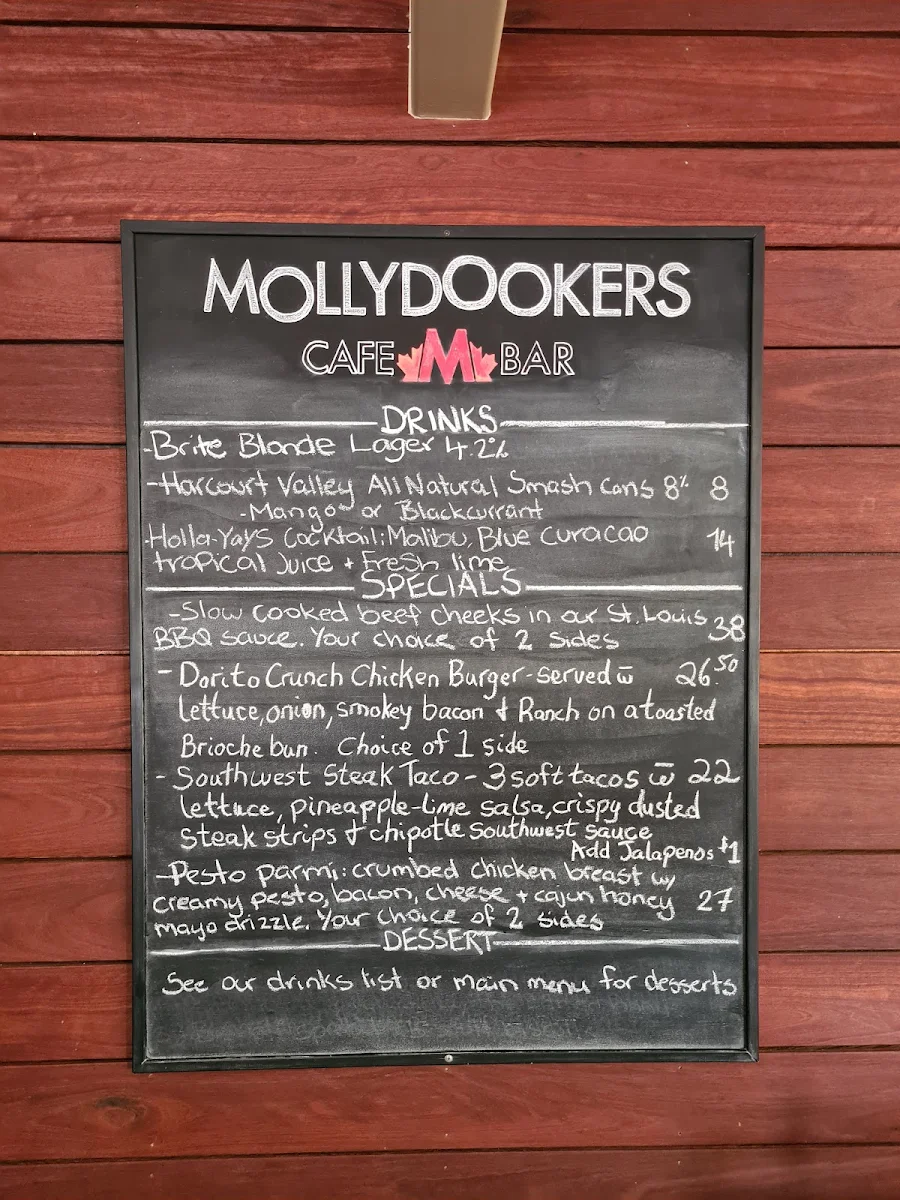 MOLLYDOOKERS
CAFE M BAR
DRINKS
-Brite Blonde Lager 4.2%
-Harcourt Valley All Natural Smash cans 8% 8
-Mango or Blackcurrant
-Holla-Yays Cocktail: Malibu, Blue Curacao 14
tropical Juice + Fresh lime
SPECIALS
-Slow cooked beef cheeks in our St. Louis 38
BBQ sauce. Your choice of 2 sides
- Dorito Crunch Chicken Burger-served w̅ 26.50
lettuce, onion, smokey bacon + Ranch on a toasted
Brioche bun. Choice of 1 side
- Southwest Steak Taco - 3 soft tacos w̅ 22
lettuce, pineapple-lime salsa, crispy dusted
steak strips + chipotle southwest sauce
Add Jalapenos $1
-Pesto parmi: crumbed chicken breast w/
creamy pesto, bacon, cheese + cajun honey 27
mayo drizzle. Your choice of 2 sides
DESSERT
See our drinks list or main menu for desserts